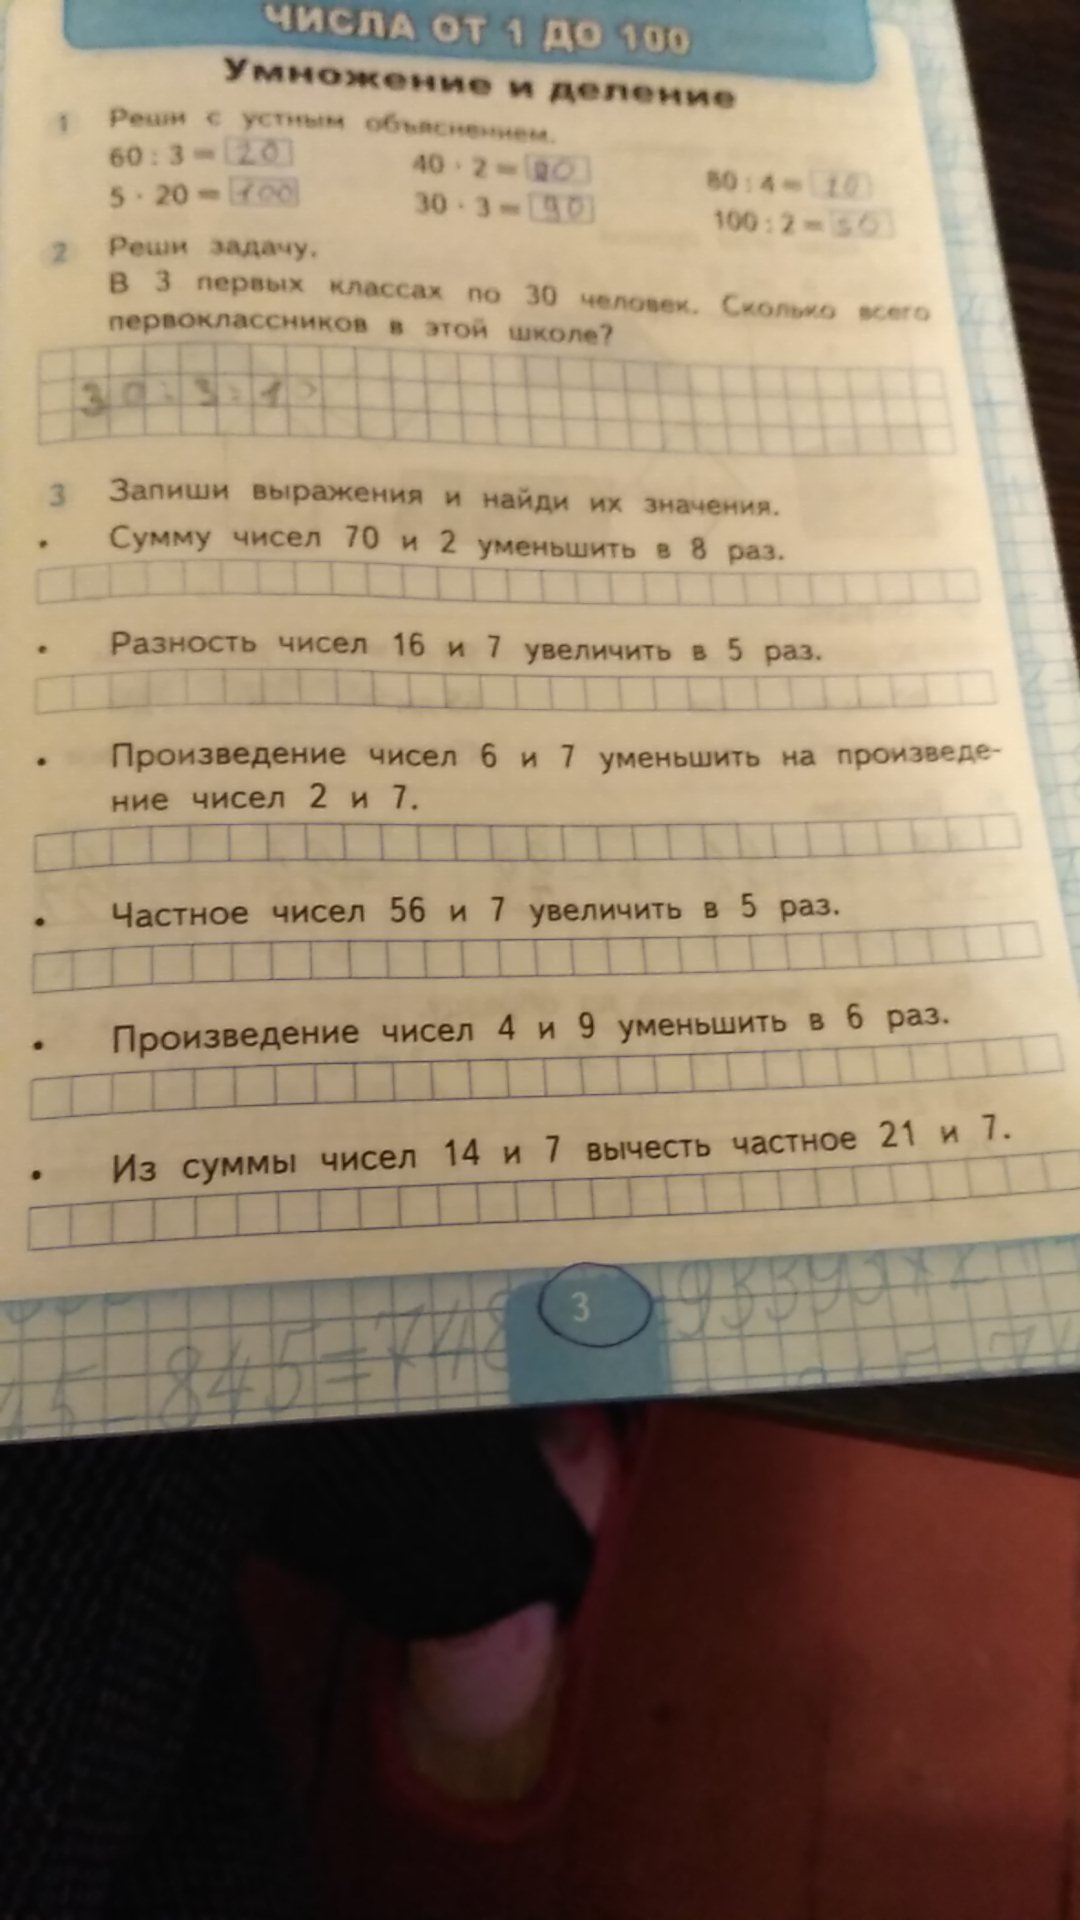 ЧИСЛА ОТ 1 ДО 100
Умножение и деление
1 Реши с устным объяснением.
60 : 3 = 20 40 · 2 = 80 80 : 4 = 20
5 · 20 = 100 30 · 3 = 90 100 : 2 = 50
2 Реши задачу.
В 3 первых классах по 30 человек. Сколько всего
первоклассников в этой школе?
30 : 3 = 1
3 Запиши выражения и найди их значения.
• Сумму чисел 70 и 2 уменьшить в 8 раз.
• Разность чисел 16 и 7 увеличить в 5 раз.
• Произведение чисел 6 и 7 уменьшить на произведе-
ние чисел 2 и 7.
• Частное чисел 56 и 7 увеличить в 5 раз.
• Произведение чисел 4 и 9 уменьшить в 6 раз.
• Из суммы чисел 14 и 7 вычесть частное 21 и 7.
3
845=748